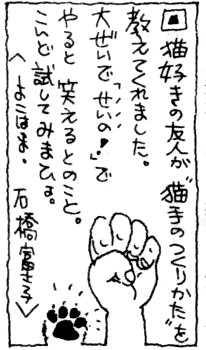 猫好きの友人が“猫手のつくりかた”を
教えてくれました。
大ぜいで「いっせいの!」で
やると笑えるとのこと。
こんど試してみまひょ。
＜よこはま・石橋富士子＞